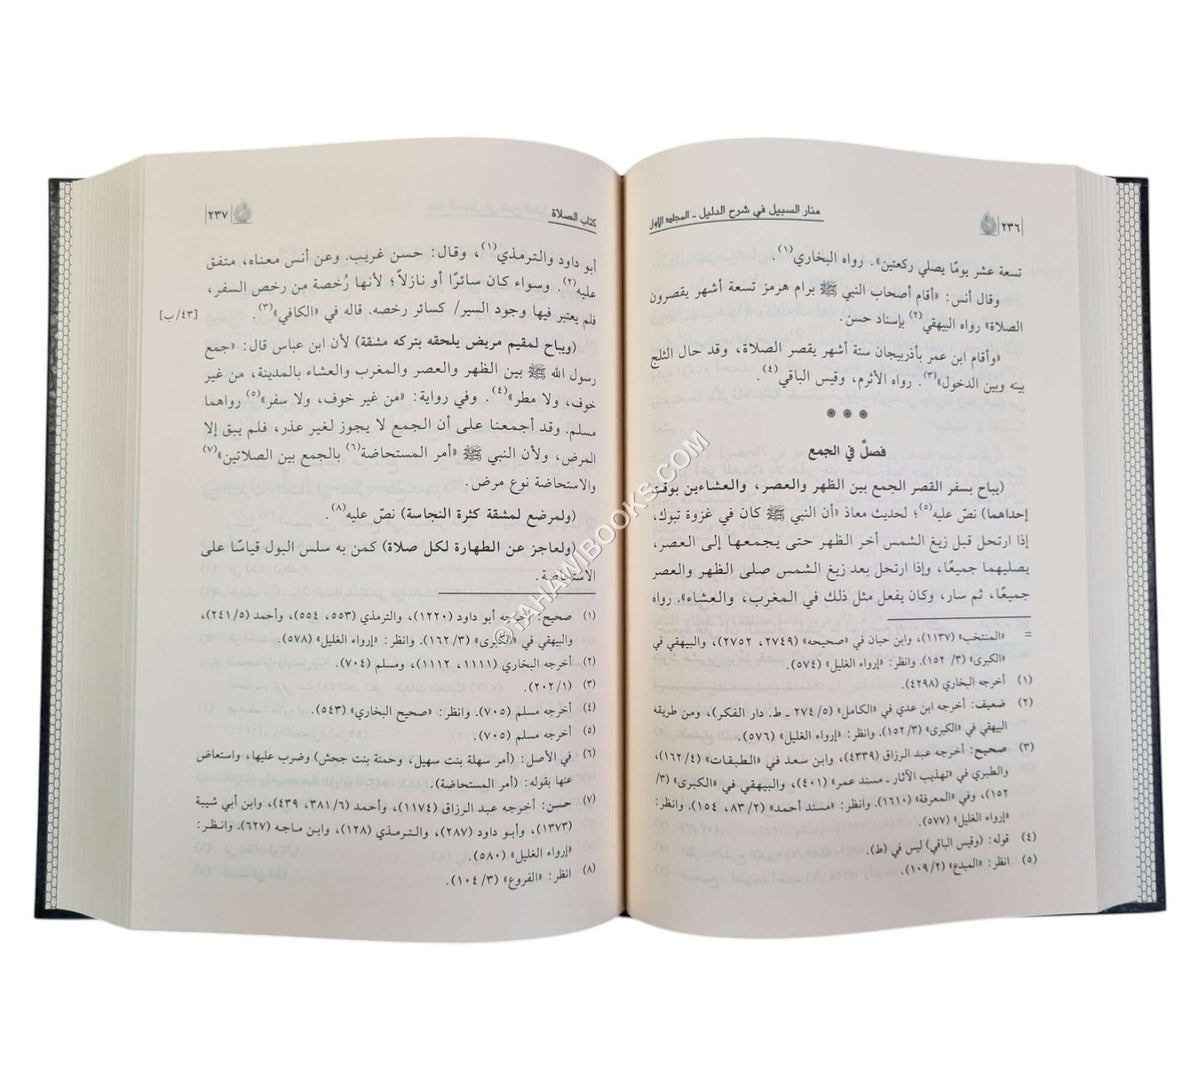 ٢٣٦
منار السبيل في شرح الدليل - المجلد الأول
تسعة عشر يومًا يصلي ركعتين». رواه البخاري(١).
وقال أنس: «أقام أصحاب النبي ﷺ برام هرمز تسعة أشهر يقصرون
الصلاة» رواه البيهقي(٢) بإسناد حسن.
«وأقام ابن عمر بأذربيجان ستة أشهر يقصر الصلاة، وقد حال الثلج
بينه وبين الدخول»(٣). رواه الأثرم، وقيس الباقي(٤).
* * *
فصلٌ في الجمع
(يباح بسفر القصر الجمع بين الظهر والعصر، والعشاءين بوقت
إحداهما) نصّ عليه(٥)؛ لحديث معاذ: «أن النبي ﷺ كان في غزوة تبوك،
إذا ارتحل قبل زيغ الشمس أخر الظهر حتى يجمعها إلى العصر،
يصليهما جميعًا، وإذا ارتحل بعد زيغ الشمس صلى الظهر والعصر
جميعًا، ثم سار، وكان يفعل مثل ذلك في المغرب، والعشاء». رواه
= «المنتخب» (١١٣٧)، وابن حبان في «صحيحه» (٢٧٤٩، ٢٧٥٢)، والبيهقي في
«الكبرى» (٣/ ١٥٢). وانظر: «إرواء الغليل» (٥٧٤).
(١) أخرجه البخاري (٤٢٩٨).
(٢) ضعيف: أخرجه ابن عدي في «الكامل» (٥/ ٢٧٤ ـ ط. دار الفكر)، ومن طريقه
البيهقي في «الكبرى» (٣/ ١٥٢). وانظر: «إرواء الغليل» (٥٧٦).
(٣) صحيح: أخرجه عبد الرزاق (٤٣٣٩)، وابن سعد في «الطبقات» (٤/ ١٦٢)،
والطبري في «تهذيب الآثار ـ مسند عمر» (٤٠١)، والبيهقي في «الكبرى» (٣/
١٥٢)، وفي «المعرفة» (١٦١٠). وانظر: «مسند أحمد» (٢/ ٨٣، ١٥٤). وانظر:
«إرواء الغليل» (٥٧٧).
(٤) قوله: (وقيس الباقي) ليس في (ط).
(٥) انظر: «المبدع» (٢/ ١٠٩).
كتاب الصلاة
٢٣٧
أبو داود والترمذي(١)، وقال: حسن غريب. وعن أنس معناه، متفق
عليه(٢). وسواء كان سائرًا أو نازلًا؛ لأنها رُخصة من رخص السفر،
فلم يعتبر فيها وجود السير/ كسائر رخصه. قاله في «الكافي»(٣). [٤٣/ ب]
(ويباح لمقيم مريض يلحقه بتركه مشقة) لأن ابن عباس قال: «جمع
رسول الله ﷺ بين الظهر والعصر والمغرب والعشاء بالمدينة، من غير
خوف، ولا مطر»(٤). وفي رواية: «من غير خوف، ولا سفر»(٥) رواهما
مسلم. وقد أجمعنا على أن الجمع لا يجوز لغير عذر، فلم يبق إلا
المرض، ولأن النبي ﷺ «أمر المستحاضة(٦) بالجمع بين الصلاتين»(٧)
والاستحاضة نوع مرض.
(ولمرضع لمشقة كثرة النجاسة) نصّ عليه(٨).
(ولعاجز عن الطهارة لكل صلاة) كمن به سلس البول قياسًا على
الاستحاضة.
(١) صحيح: أخرجه أبو داود (١٢٢٠)، والترمذي (٥٥٣، ٥٥٤)، وأحمد (٥/ ٢٤١)،
والبيهقي في «الكبرى» (٣/ ١٦٢). وانظر: «إرواء الغليل» (٥٧٨).
(٢) أخرجه البخاري (١١١١، ١١١٢)، ومسلم (٧٠٤).
(٣) (١/ ٢٠٢).
(٤) أخرجه مسلم (٧٠٥). وانظر: «صحيح البخاري» (٥٤٣).
(٥) أخرجه مسلم (٧٠٥).
(٦) في الأصل: (أمر سهلة بنت سهيل، وحمنة بنت جحش) وضرب عليها، واستعاض
عنها بقوله: (أمر المستحاضة).
(٧) حسن: أخرجه عبد الرزاق (١١٧٤)، وأحمد (٦/ ٣٨١، ٤٣٩)، وابن أبي شيبة
(١٣٧٣)، وأبو داود (٢٨٧)، والترمذي (١٢٨)، وابن ماجه (٦٢٧). وانظر:
«إرواء الغليل» (٥٨٠).
(٨) انظر: «الفروع» (٣/ ١٠٤).
©TAHAWIBOOKS.COM